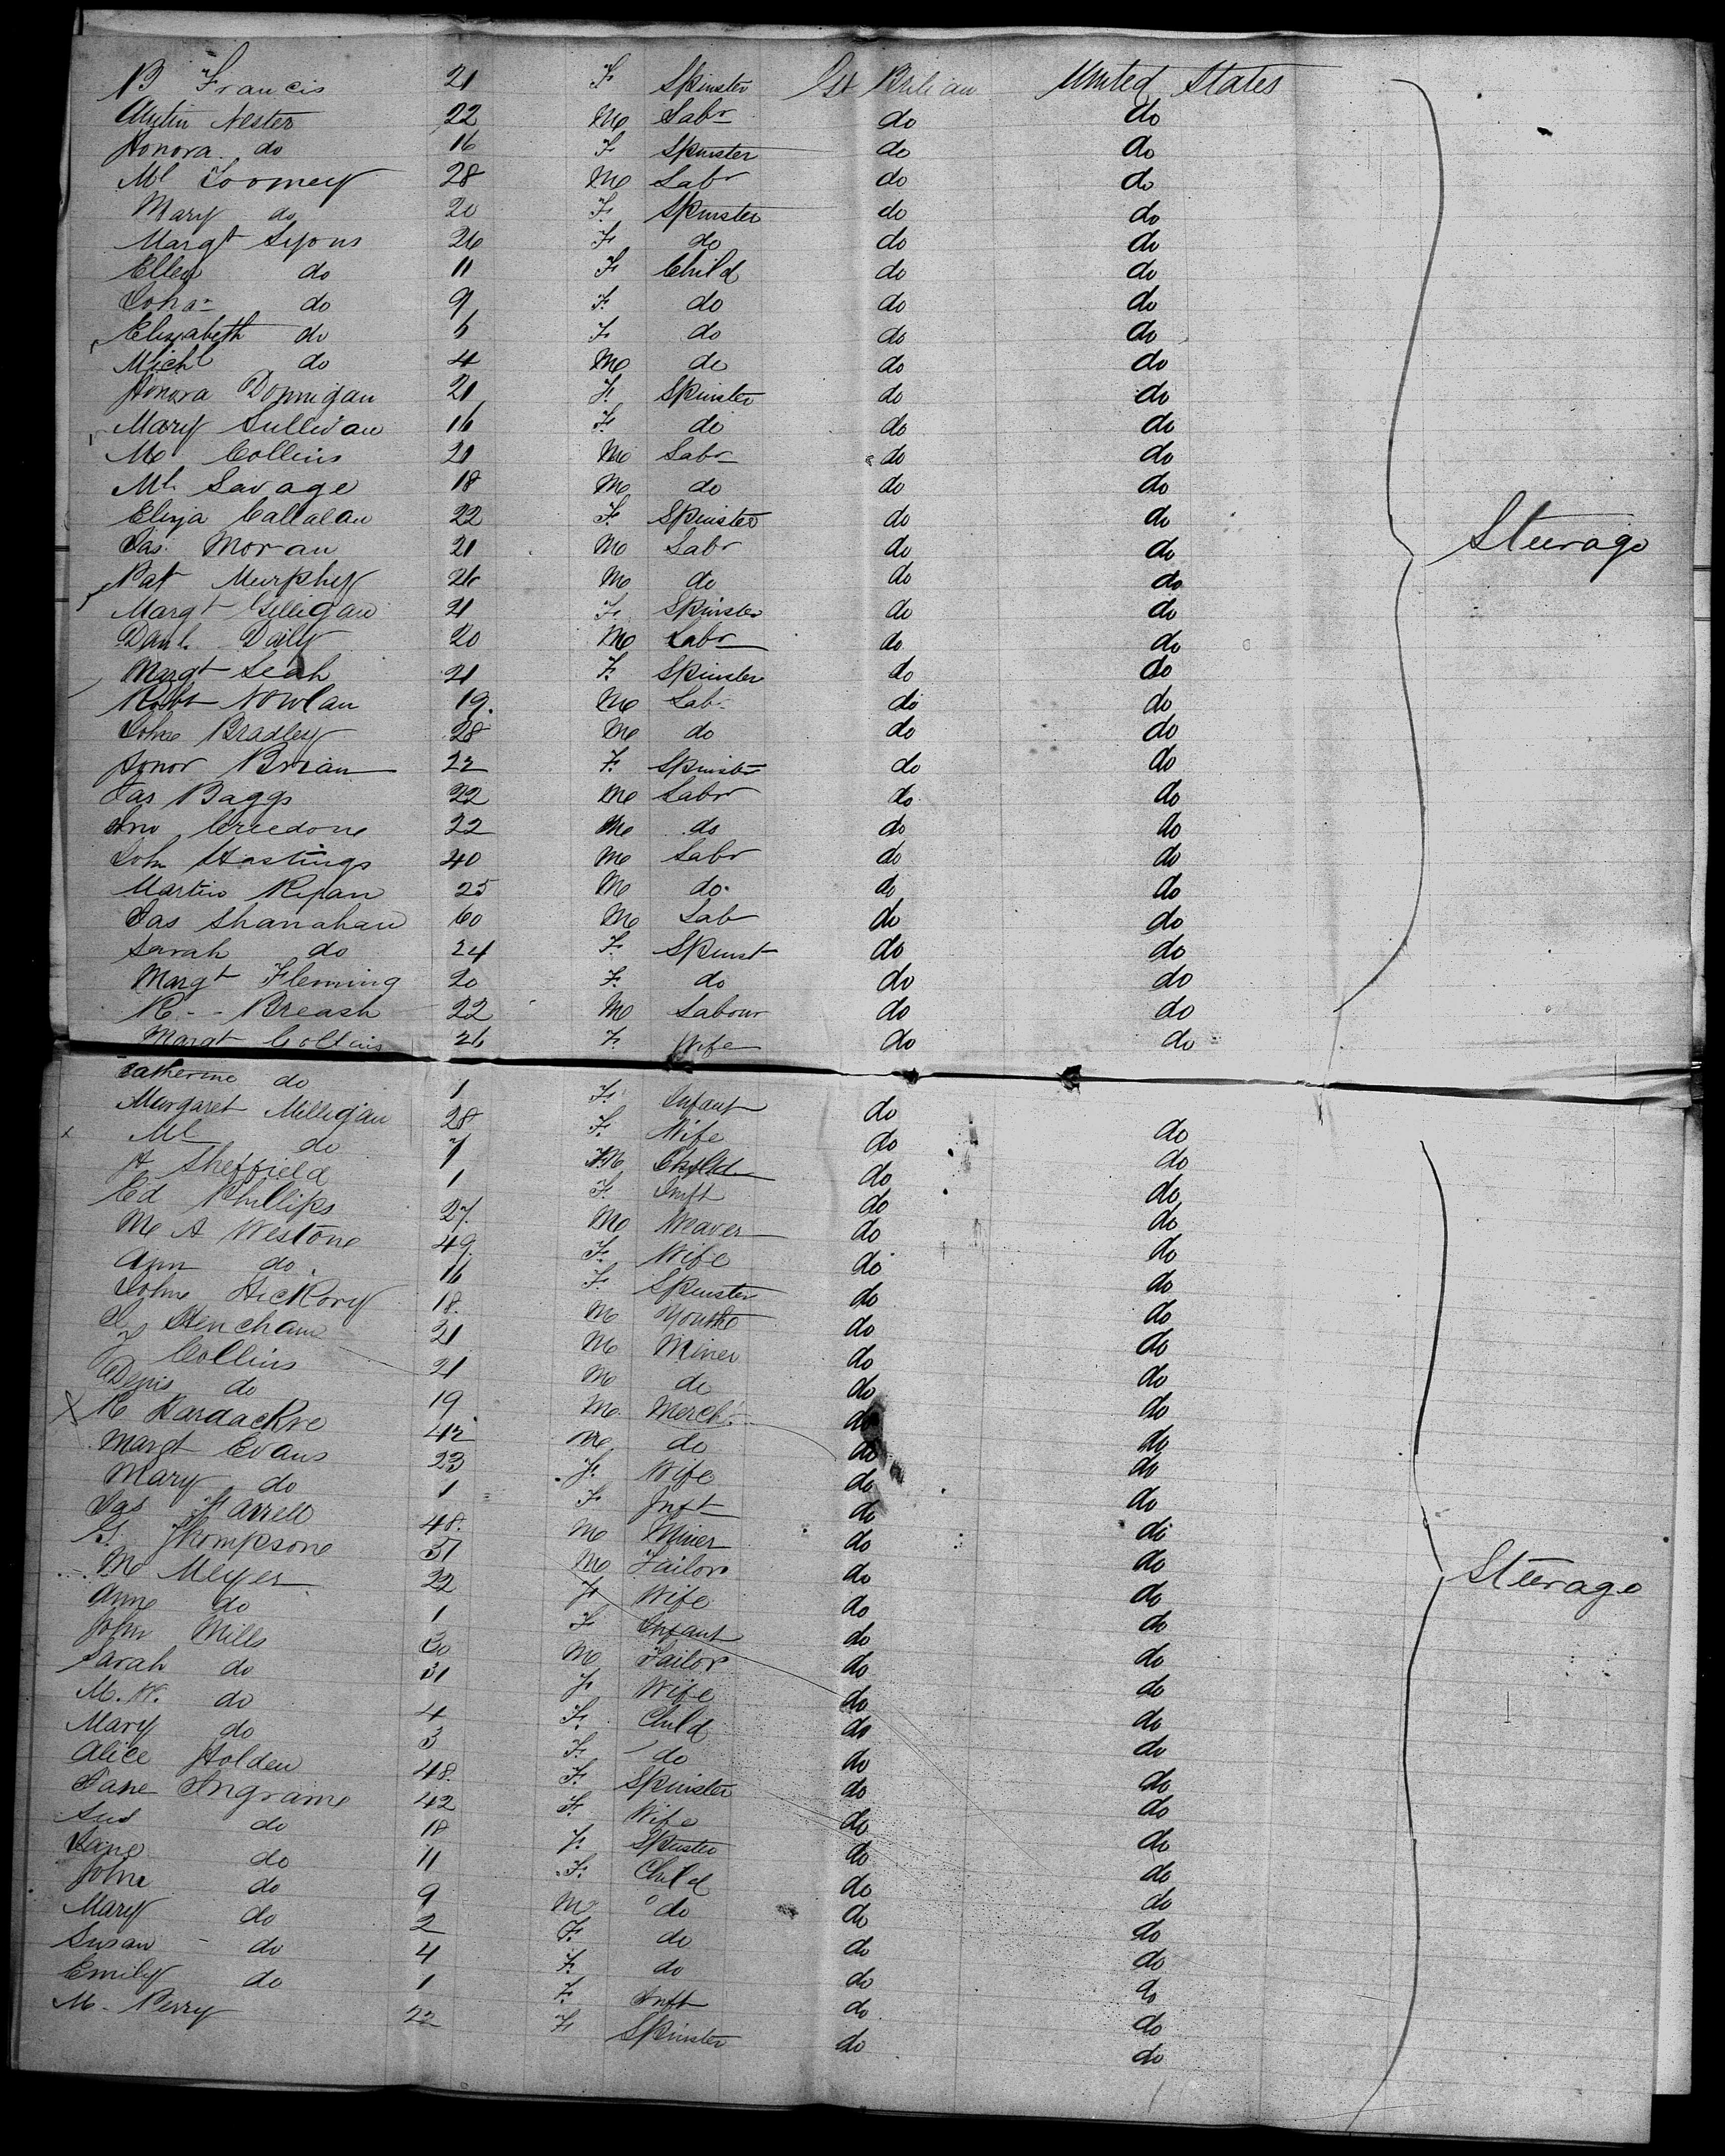 B Francis 21 F Spinster Gt Britian United States
Austin Nester 22 M Labr do do
Honora do 16 F Spinster do do
Ml Toomey 28 M Labr do do
Mary do 20 F Spinster do do
Margt Lyons 26 F do do do
Ellen do 11 F Child do do
Joha do 9 F do do do
Elizabeth do 5 F do do do
Michl do 4 M do do do
Honora Donnigan 21 F Spinster do do
Mary Sullivan 16 F do do do
M Collins 21 M Labr do do
Ml Savage 18 M do do do
Eliza Callalan 22 F Spinster do do
Jas. Moran 21 M Labr do do
Steerage
Pat Murphy 26 M do do do
Margt Gilligan 21 F Spinster do do
Danl. Daily 20 M Labr do do
Margt Leah 21 F Spinster do do
Robt Nowlan 19. M Lab. do do
John Bradley 28 M do do do
Honor Brian 22 F Spinster do do
Jas Baggs 22 M Labr do do
Jno Creedone 22 M do do do
John Hastings 40 M Labr do do
Martin Ryan 25 M do. do do
Jas Shanahan 60 M Lab do do
Sarah do 24 F Spinst do do
Margt Fleming 20 F do do do
R. Breash 22 M Labour do do
Margt Collins 26 F Wife do do
Catherine do 1 F Infant do do
Margaret Milligan 28 F Wife do do
Ml do 7 M Child do do
A Sheffield 1 F Inft do do
Ed Phillips 27. M Weaver do do
M A Westone 49. F Wife do do
Ann do 16 F Spinster do do
John Hickory 18. M Youth do do
J Hencham 21 M Miner do do
J Collins 21 M do do do
Denis do 19 M Mercht do do
R Hardackre 42 M do do do
Margt Evans 23 F Wife do do
Mary do 1 F Inft do do
Jas Farrell 48. M Miner do do
G. Thompsone 31 M Tailor do do
Steerage
M Meyer 22 F Wife do do
Anne do 1 F Infant do do
John Mills 30 M Tailor do do
Sarah do 31 F Wife do do
M. W. do 4 F Child do do
Mary do 3 F do do do
Alice Holden 48. F Spinster do do
Jane Ingrame 42 F Wife do do
do 18 F Spinster do do
Jane do 11 F Child do do
John do 9 M do do do
Mary do 2 F do do do
Susan do 4 F do do do
Emily do 1 F Inft do do
M. Perry 22 F Spinster do do